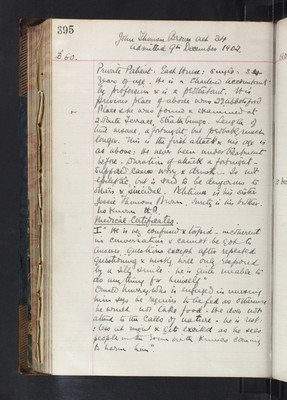 395
John Thomson Brown aet 34
Admitted 9th December 1902.
£60.
Private Patient. East House: Single: 34
Years of age. He is a Chartered accountant
by profession & is a protestant. His
previous place of abode was 27 Abbotsford
Place & he was found & examined at
2 Terrace, Strathbungo. Length of
time insane, a fortnight but probably much
longer. This is the first attack & his age is
as above: has never been under treatment
before. Duration of attack a fortnight.
Supposed cause worry & drink. Is not
epileptic, but is said to be dangerous to
others & suicidal. Petitioner is his sister
Jessie Thomson Brown.
No known H.P.
Medical Certificates.
I "He is very confused & incoherent
in conversation & cannot be got to
answer questions except after repeated
questioning & mostly will only respond
by a silly smile. he is quite unable to
do anything for himself"
who is engaged in nursing
him says he requires to be fed as otherwise
he would not take food. He does not
attend to the calls of nature. he is rest-
less at night & gets excited as he sees
people in the room with knives coming
to harm him"